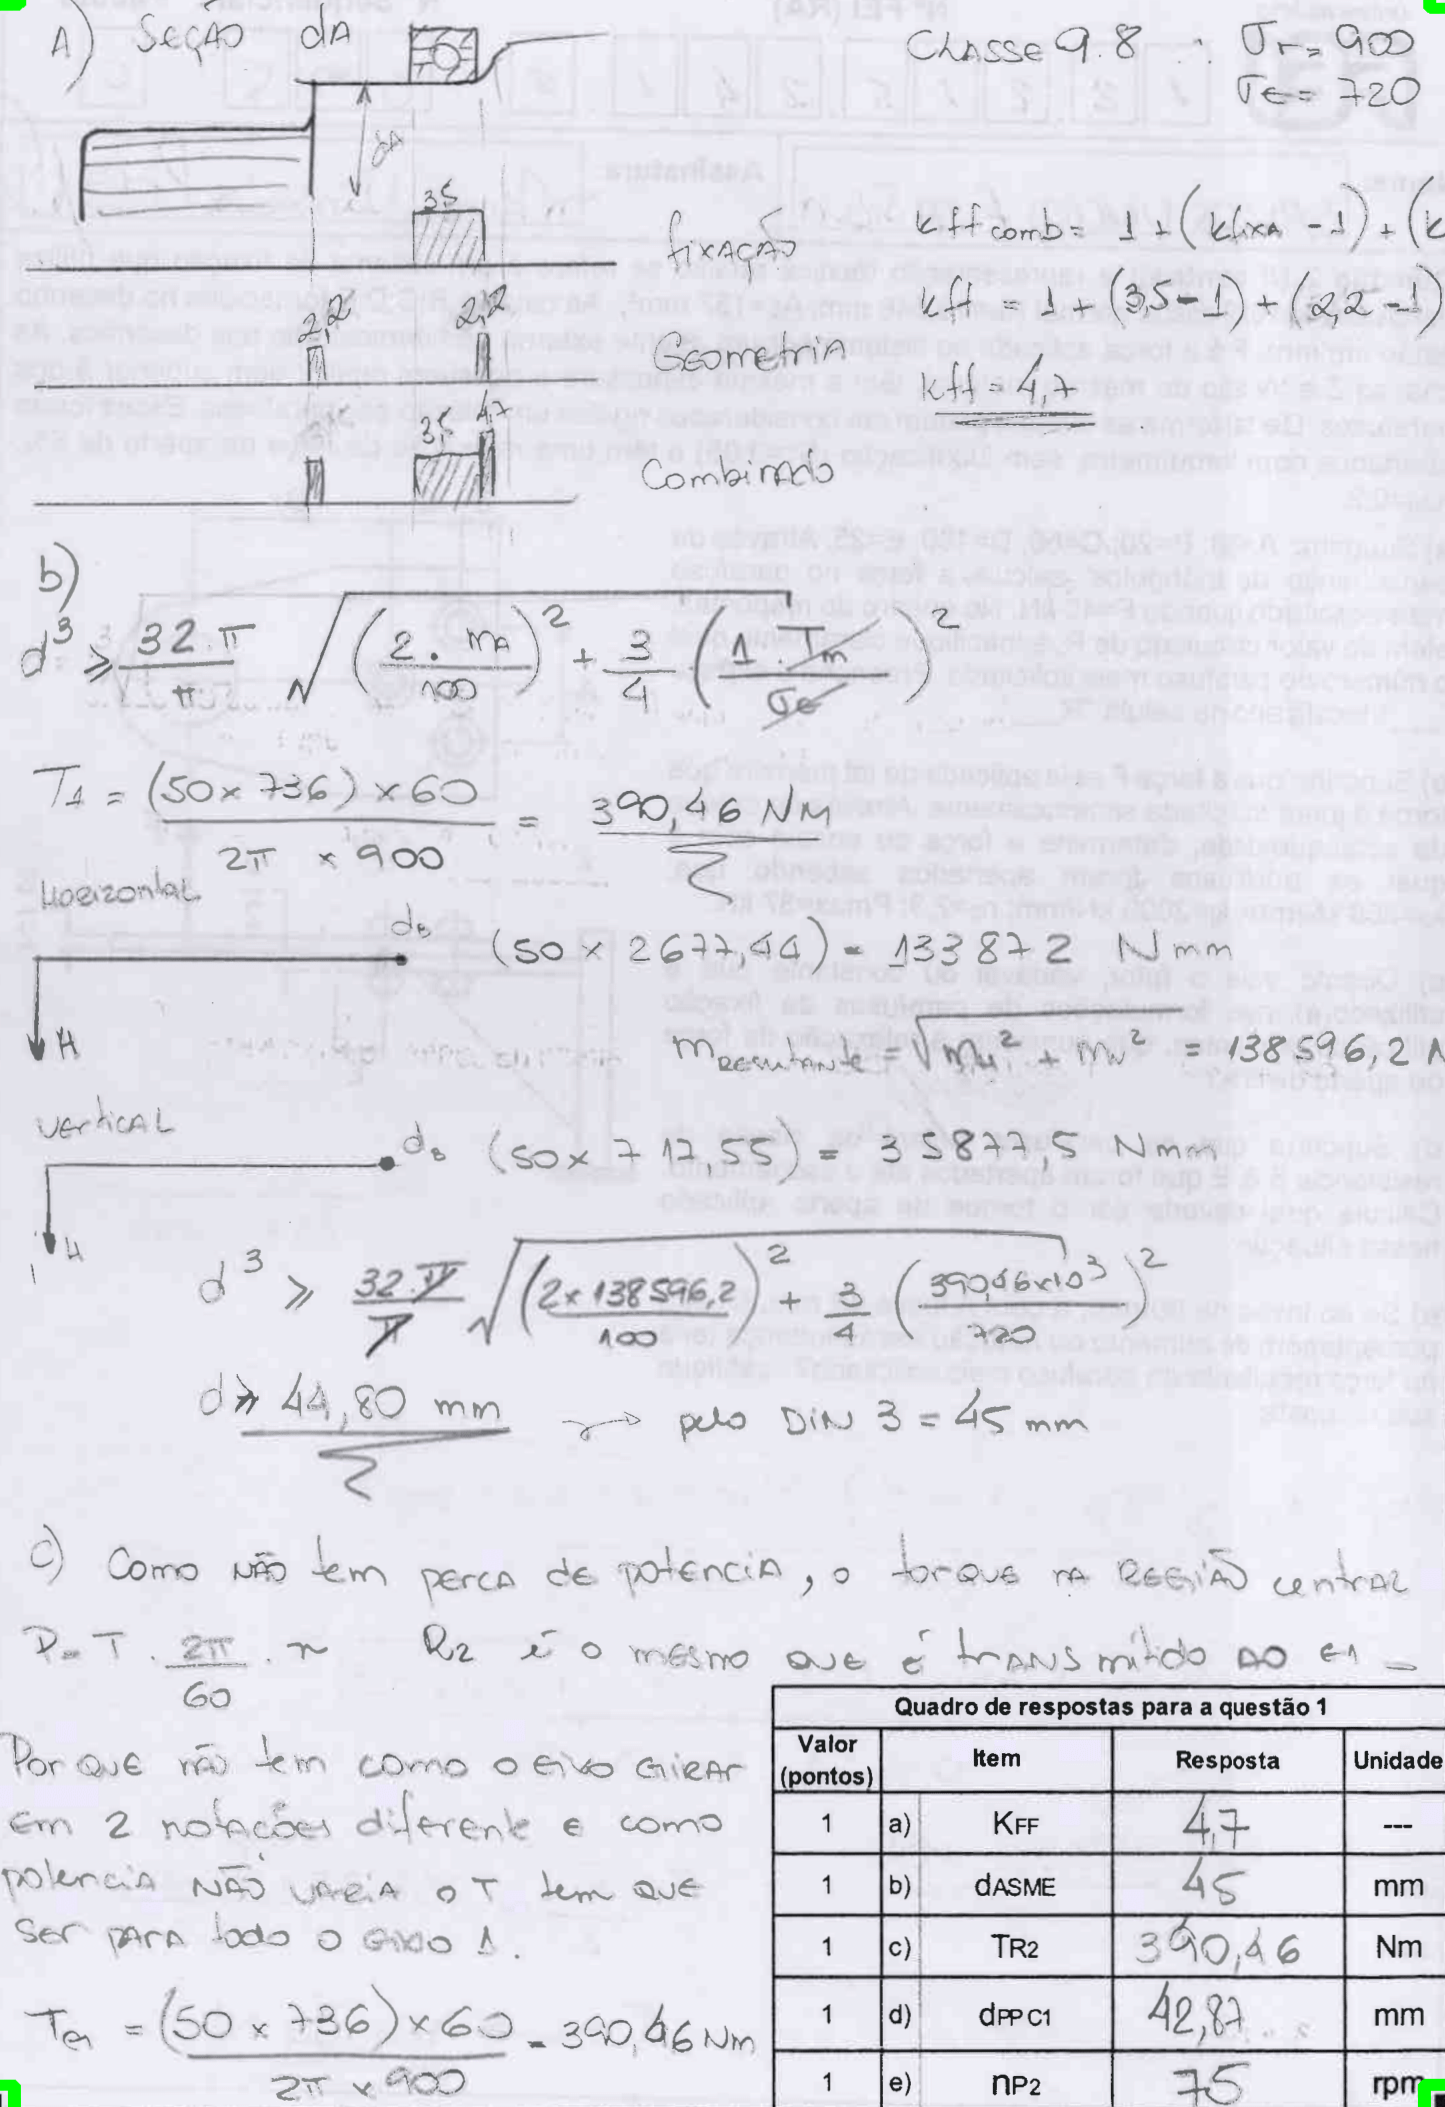 A) Seção dA
CLASSE 9.8 ∴ σr = 900
σe = 720
dA
3,5
fixação
kff comb = 1 + (kfixa - 1) + (k
kff = 1 + (3,5 - 1) + (2,2 - 1)
2,2 2,2
Geometria
kff = 4,7
3,5 4,7
Combinado
b)
d³ ≥ 32.π/π √((2. mA/100)² + 3/4 (1. Tm/σe)²)
T1 = (50 x 736) x 60 / 2π x 900 = 390,46 NM
Horizontal
dB (50 x 2677,44) = 133872 Nmm
H
mresultante = √mH² + mV² = 138596,2 N
vertical
dB (50 x 717,55) = 35877,5 Nmm
H
d³ ≥ 32.π/π √((2 x 138596,2/100)² + 3/4 (390,46x10³/720)²)
d ≥ 44,80 mm → pelo DIN 3 = 45 mm
c) Como não tem perca de potencia, o torque na região central
P = T . 2π/60 . n R2 é o mesmo que é transmitido ao e1
Por que não tem como o eixo girar
em 2 rotações diferente e como
potencia não varia o T tem que
ser para todo o eixo 1.
Te1 = (50 x 736) x 60 / 2π x 900 = 390,46 Nm
Quadro de respostas para a questão 1
Valor (pontos) Item Resposta Unidade
1 a) KFF 4,7 ---
1 b) dASME 45 mm
1 c) TR2 390,46 Nm
1 d) dPP C1 42,87 mm
1 e) nP2 75 rpm